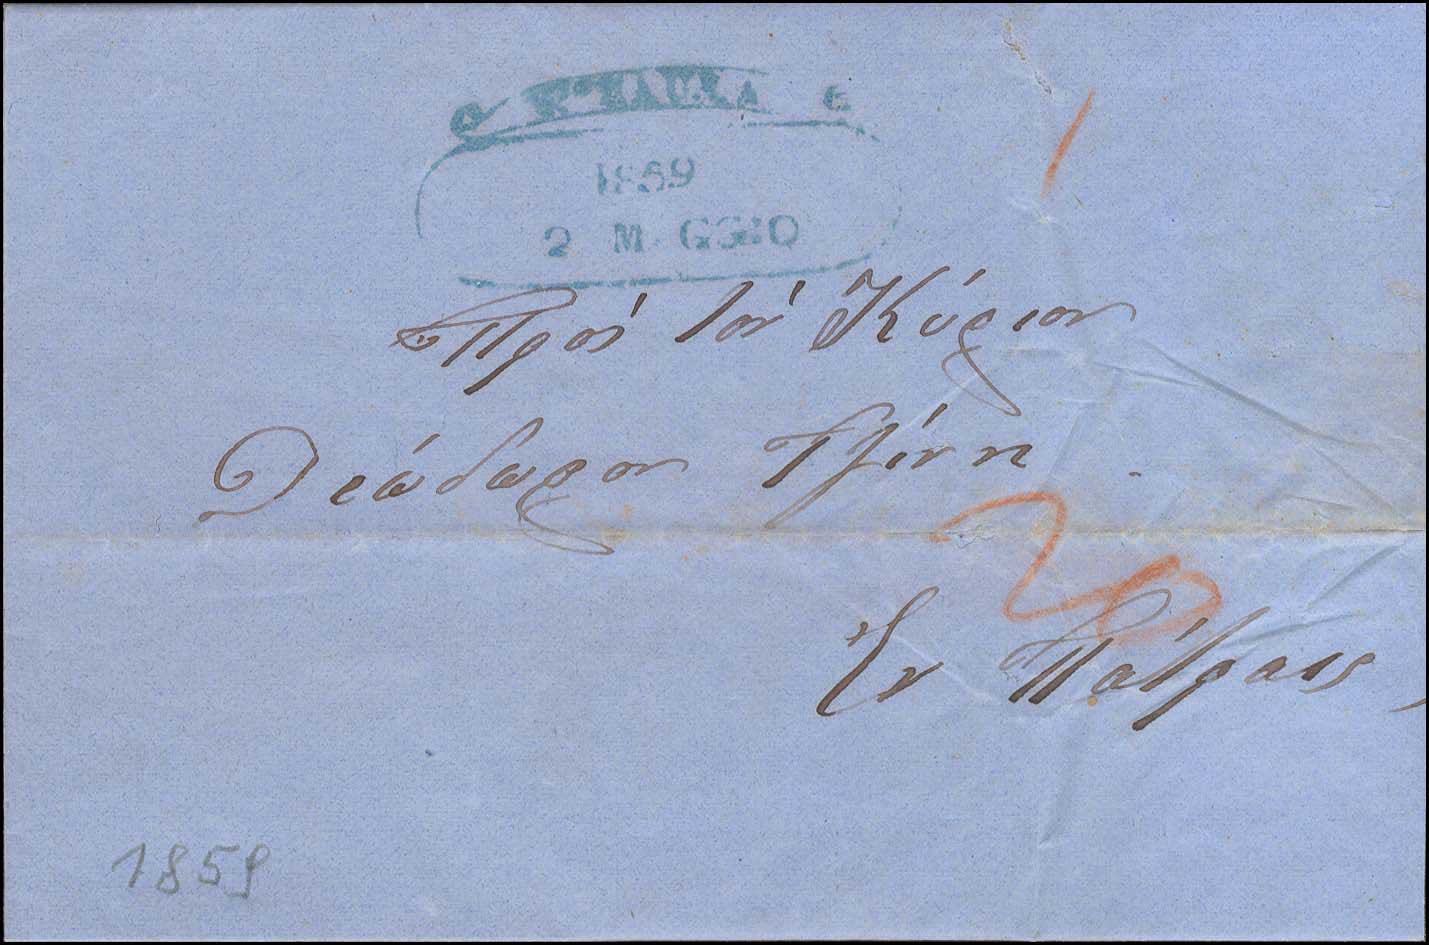 1859
2 M GGIO
Πρὸς τὸν Κύριον
Θεόδωρον Τζίνη
20
Ἐν Πάτραις,
1859